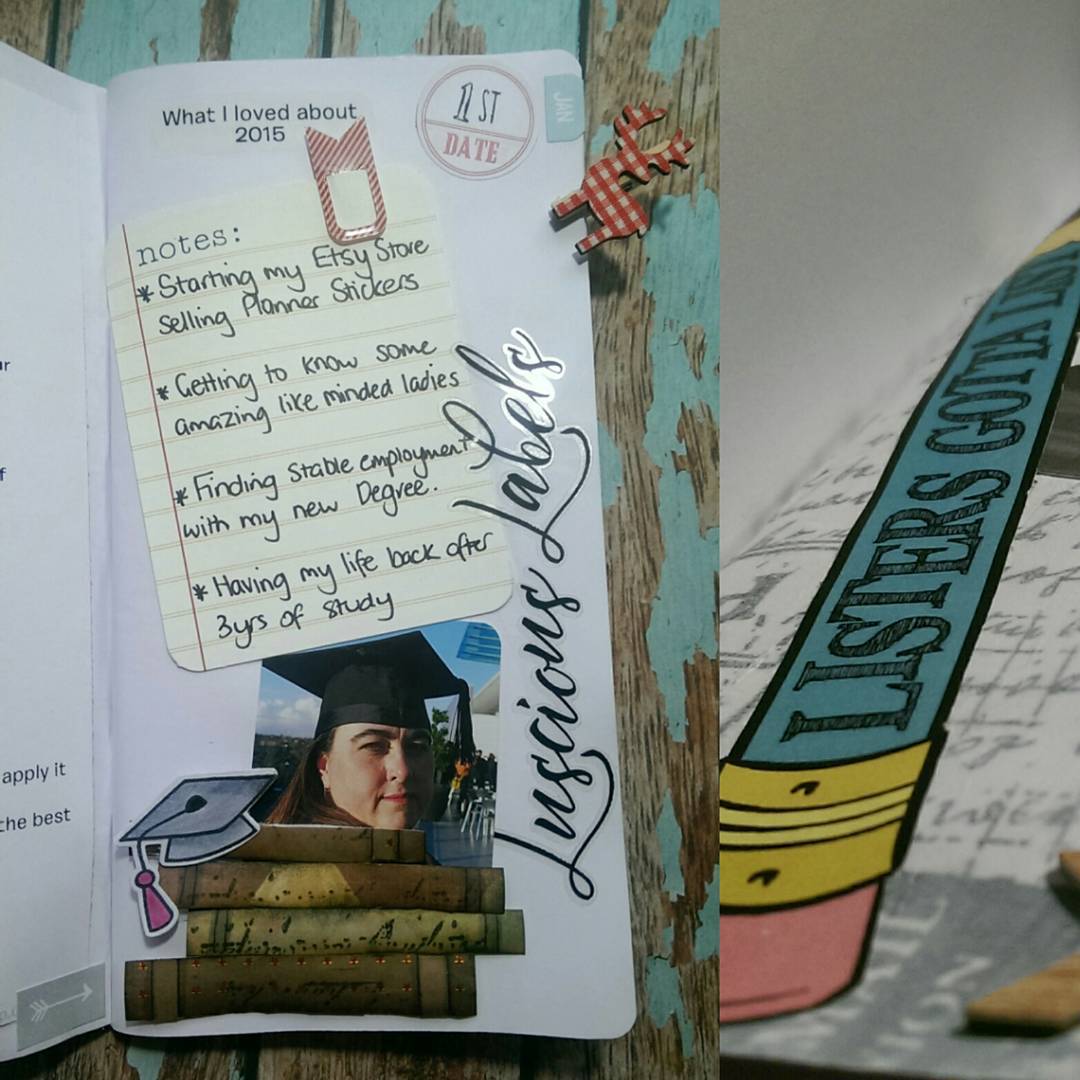 What I loved about
2015
1 ST
DATE
JAN
notes:
* Starting my Etsy Store
selling Planner Stickers
* Getting to know some
amazing like minded ladies
* Finding stable employment
with my new Degree.
* Having my life back after
3yrs of study
Luscious Labels
apply it
the best
LISTERS GOTTA LIST